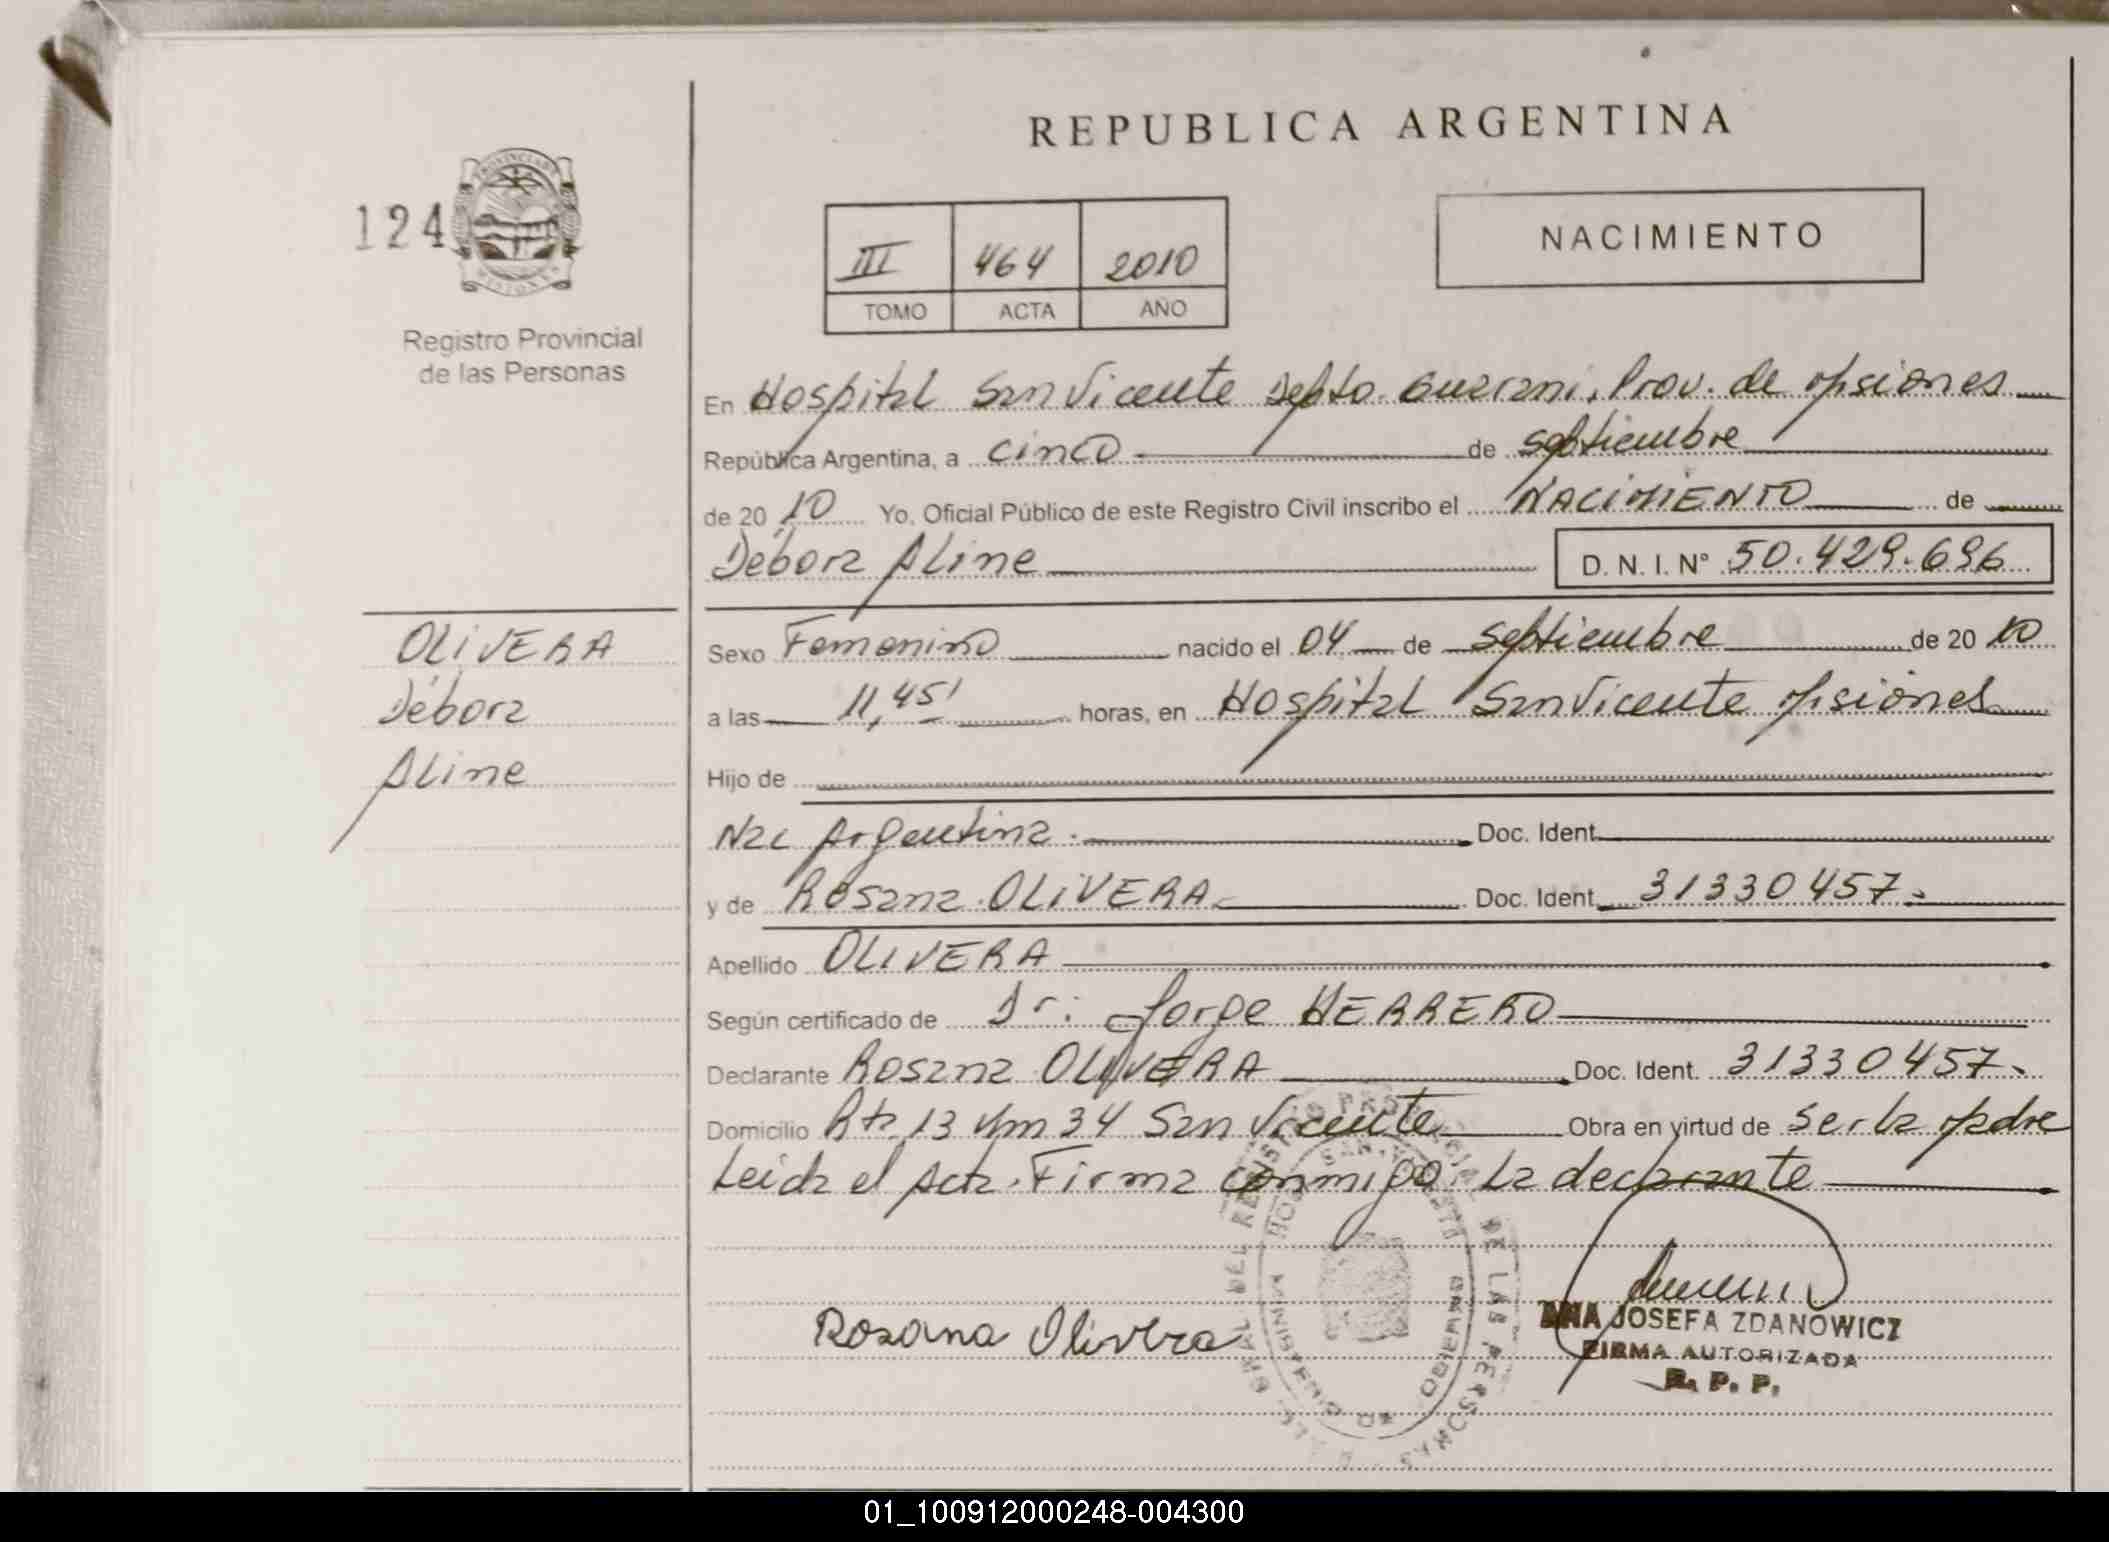 REPUBLICA ARGENTINA
124
Registro Provincial
de las Personas
III 464 2010
TOMO ACTA AÑO
NACIMIENTO
En Hospital San Vicente Depto. Guarani, Prov. de Misiones
República Argentina, a cinco de septiembre
de 20 10 Yo, Oficial Público de este Registro Civil inscribo el NACIMIENTO de
Débora Aline D. N. I. N° 50.429.696
OLIVERA
Débora
Aline
Sexo Femenino nacido el 04 de septiembre de 20 10
a las 11,45' horas, en Hospital San Vicente Misiones
Hijo de
Nac Argentina. Doc. Ident.
y de Rosana OLIVERA Doc. Ident. 31330457.
Apellido OLIVERA
Según certificado de Dr. Jorge HERRERO
Declarante Rosana OLIVERA Doc. Ident. 31330457.
Domicilio Rta 13 Km 34 San Vicente Obra en virtud de ser la Madre
Leida el Acta. Firma conmigo la declarante
Rosana Olivera
ANA JOSEFA ZDANOWICZ
FIRMA AUTORIZADA
R. P. P.
01_100912000248-004300